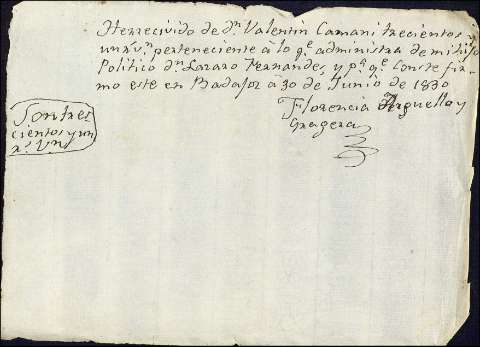 He rrecivido de dn. Valentin Camani trecientos y
un rs. vn. perteneciente à lo qe. administra de mi hijo
Politico dn. Lazaro Fernandes, y pa. qe. Conste fir-
mo este en Badajoz à 30 de Junio de 1830
Florencia Arguello y
Gragera
Son tres
cientos y un
rs. vn